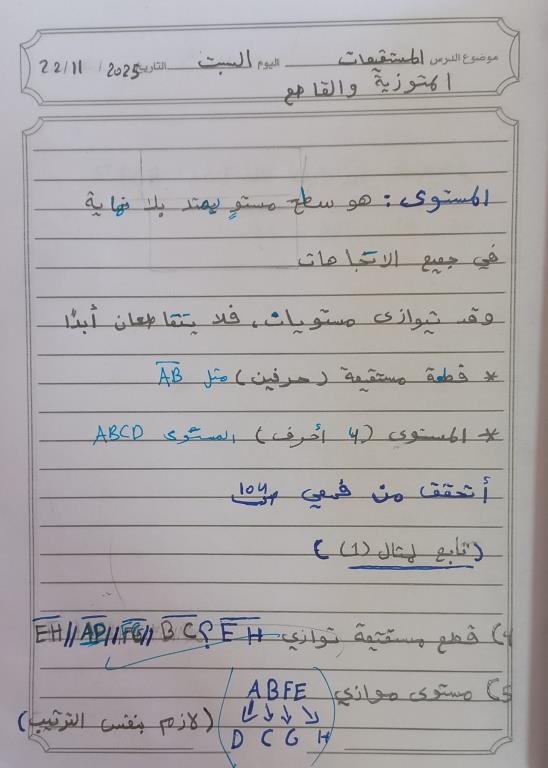 موضوع الدرس المستقيمات اليوم السبت التاريخ 22/11/2025
المتوزية والقاطع
المستوى : هو سطح مستوٍ يمتد بلا نهاية
في جميع الاتجاهات
وقد تتوازى مستويات، فلا يتقاطعان أبدًا
* قطعة مستقيمة (حرفين) مثل AB
* المستوى (4 أحرف) المستوى ABCD
أتحقق من فهمي 104
(تابع لمثال (1))
4) قطع مستقيمة توازي EH؟ BC // FG // AD // EH
5) مستوى موازي ABFE (لازم بنفس الترتيب)
D C G H